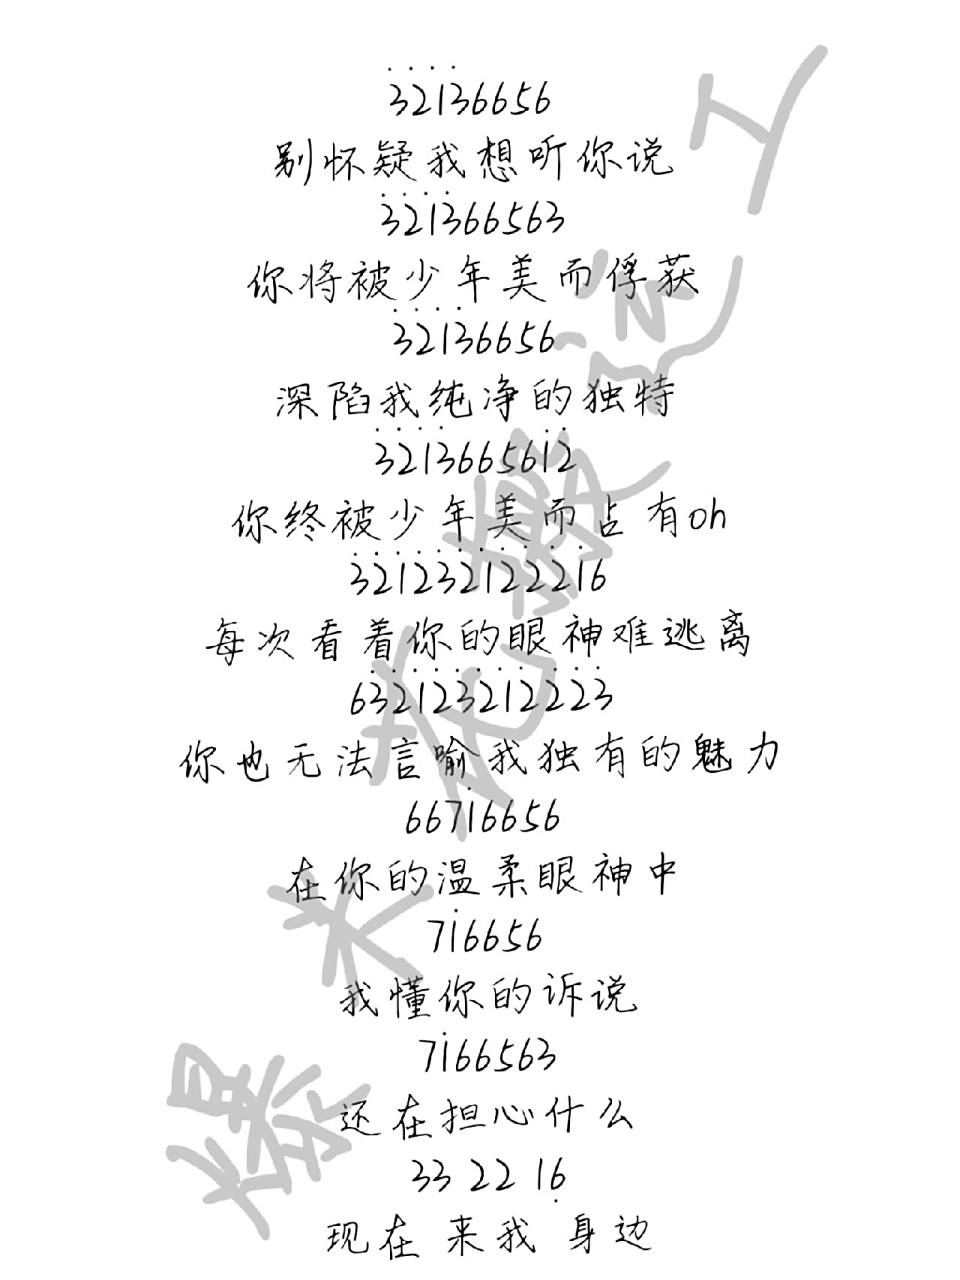 32136656
别怀疑我想听你说
321366563
你将被少年美而俘获
32136656
深陷我纯净的独特
3213665612
你终被少年美而占有oh
321232122216
每次看着你的眼神难逃离
632123212223
你也无法言喻我独有的魅力
66716656
在你的温柔眼神中
716656
我懂你的诉说
7166563
还在担心什么
33 22 16
现在 来我 身边
爆米花搬运工